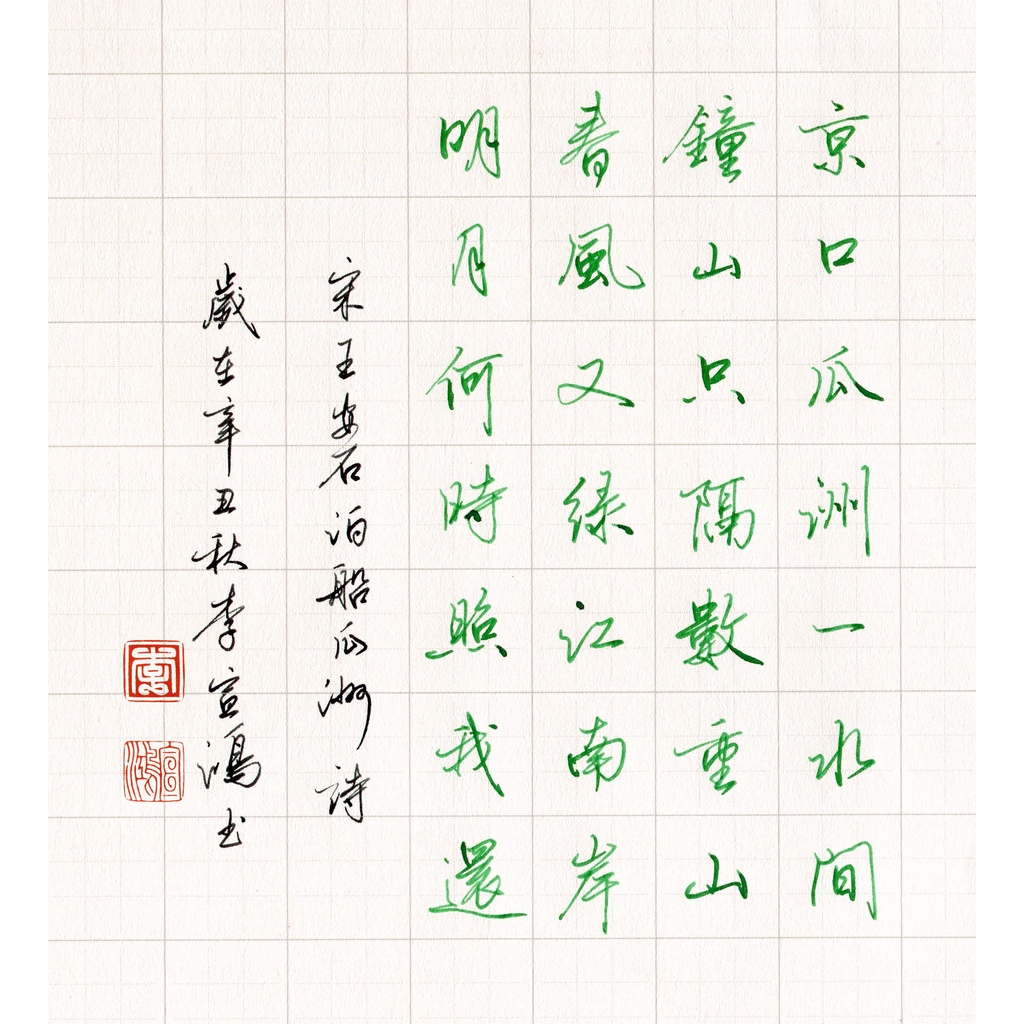 京口瓜洲一水間
鐘山只隔數重山
春風又绿江南岸
明月何時照我還
宋王安石泊船瓜洲詩
歲在辛丑秋李宣鴻书
李
宣鴻